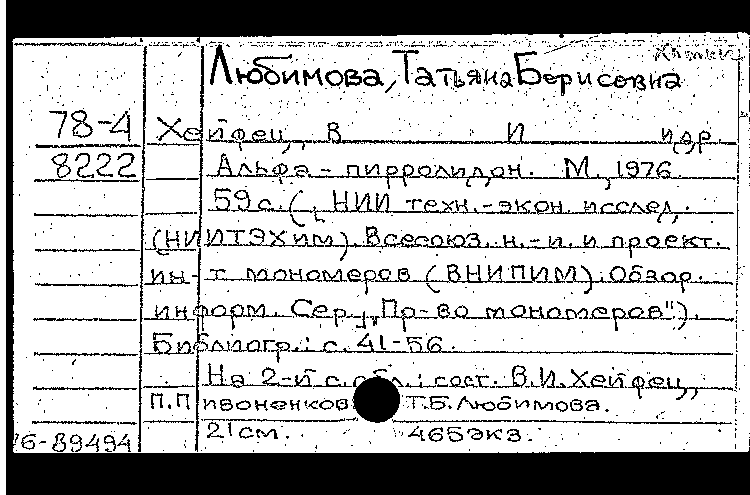 Любимова, Татьяна Борисовна
78-4 Хейфец, В И и др.
8222 Альфа-пирролидон. М., 1976
59 с. (НИИ техн.-экон. исслед.
(НИИТЭХим). Всесоюз. н.-и. и проект.
ин-т мономеров (ВНИПИМ). Обзор.
информ. Сер. "Пр-во мономеров").
Библиогр.: с. 41-56.
На 2-й с. обл.: сост. В.И. Хейфец,
П.П ивоненков Т.Б. Любимова.
76-89494 21см. 465экз.